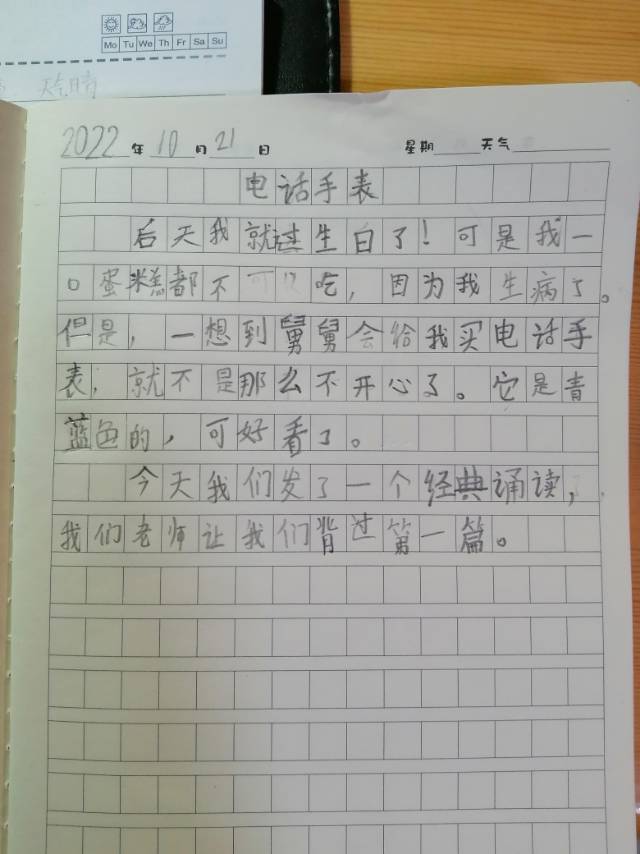 Mo Tu We Th Fr Sa Su
天气晴
2022年10月21日 星期 天气
电话手表
后天我就过生白了！可是我一
口蛋糕都不可以吃，因为我生病了。
但是，一想到舅舅会给我买电话手
表，就不是那么不开心了。它是青
蓝色的，可好看了。
今天我们发了一个经典诵读，
我们老师让我们背过第一篇。